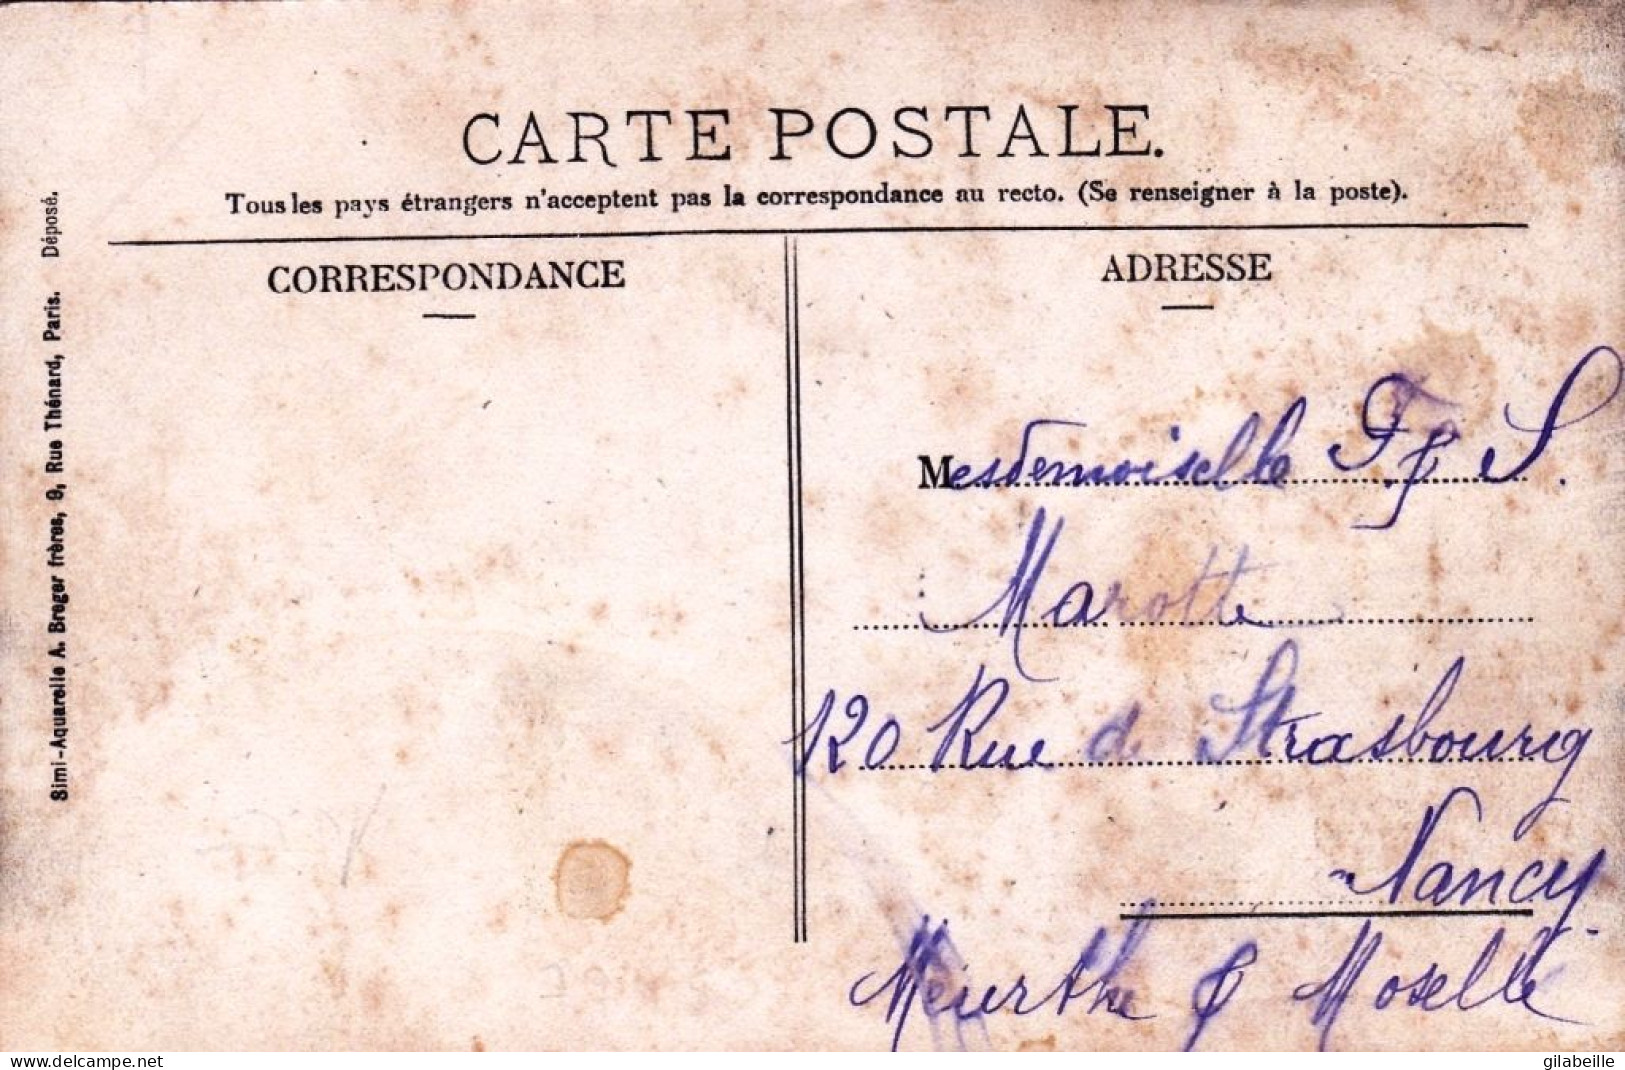 CARTE POSTALE.
Tous les pays étrangers n'acceptent pas la correspondance au recto. (Se renseigner à la poste).
CORRESPONDANCE
ADRESSE
Simi-Aquarelle A. Breger frères, 9, Rue Thénard, Paris. Déposé.
Mesdemoiselle F & S.
Marotte
120 Rue de Strasbourg
Nancy.
Meurthe & Moselle
www.delcampe.net
gilabeille